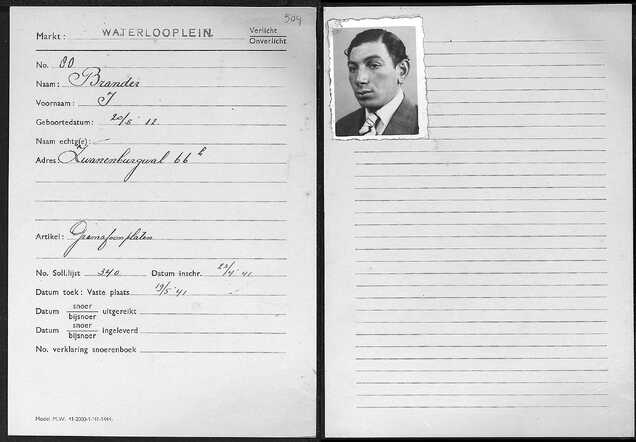 504
Markt: WATERLOOPLEIN. Verlicht
Onverlicht
No. 80
Naam: Brander
Voornaam: J
Geboortedatum: 20/5 '12
Naam echtg(e): -
Adres: Zwanenburgwal 66
Artikel: Gramofoonplaten
No. Soll.lijst 340 Datum inschr. 23/4 '41
Datum toek: Vaste plaats 19/5 '41
Datum snoer uitgereikt
bijsnoer
Datum snoer ingeleverd
bijsnoer
No. verklaring snoerenboek